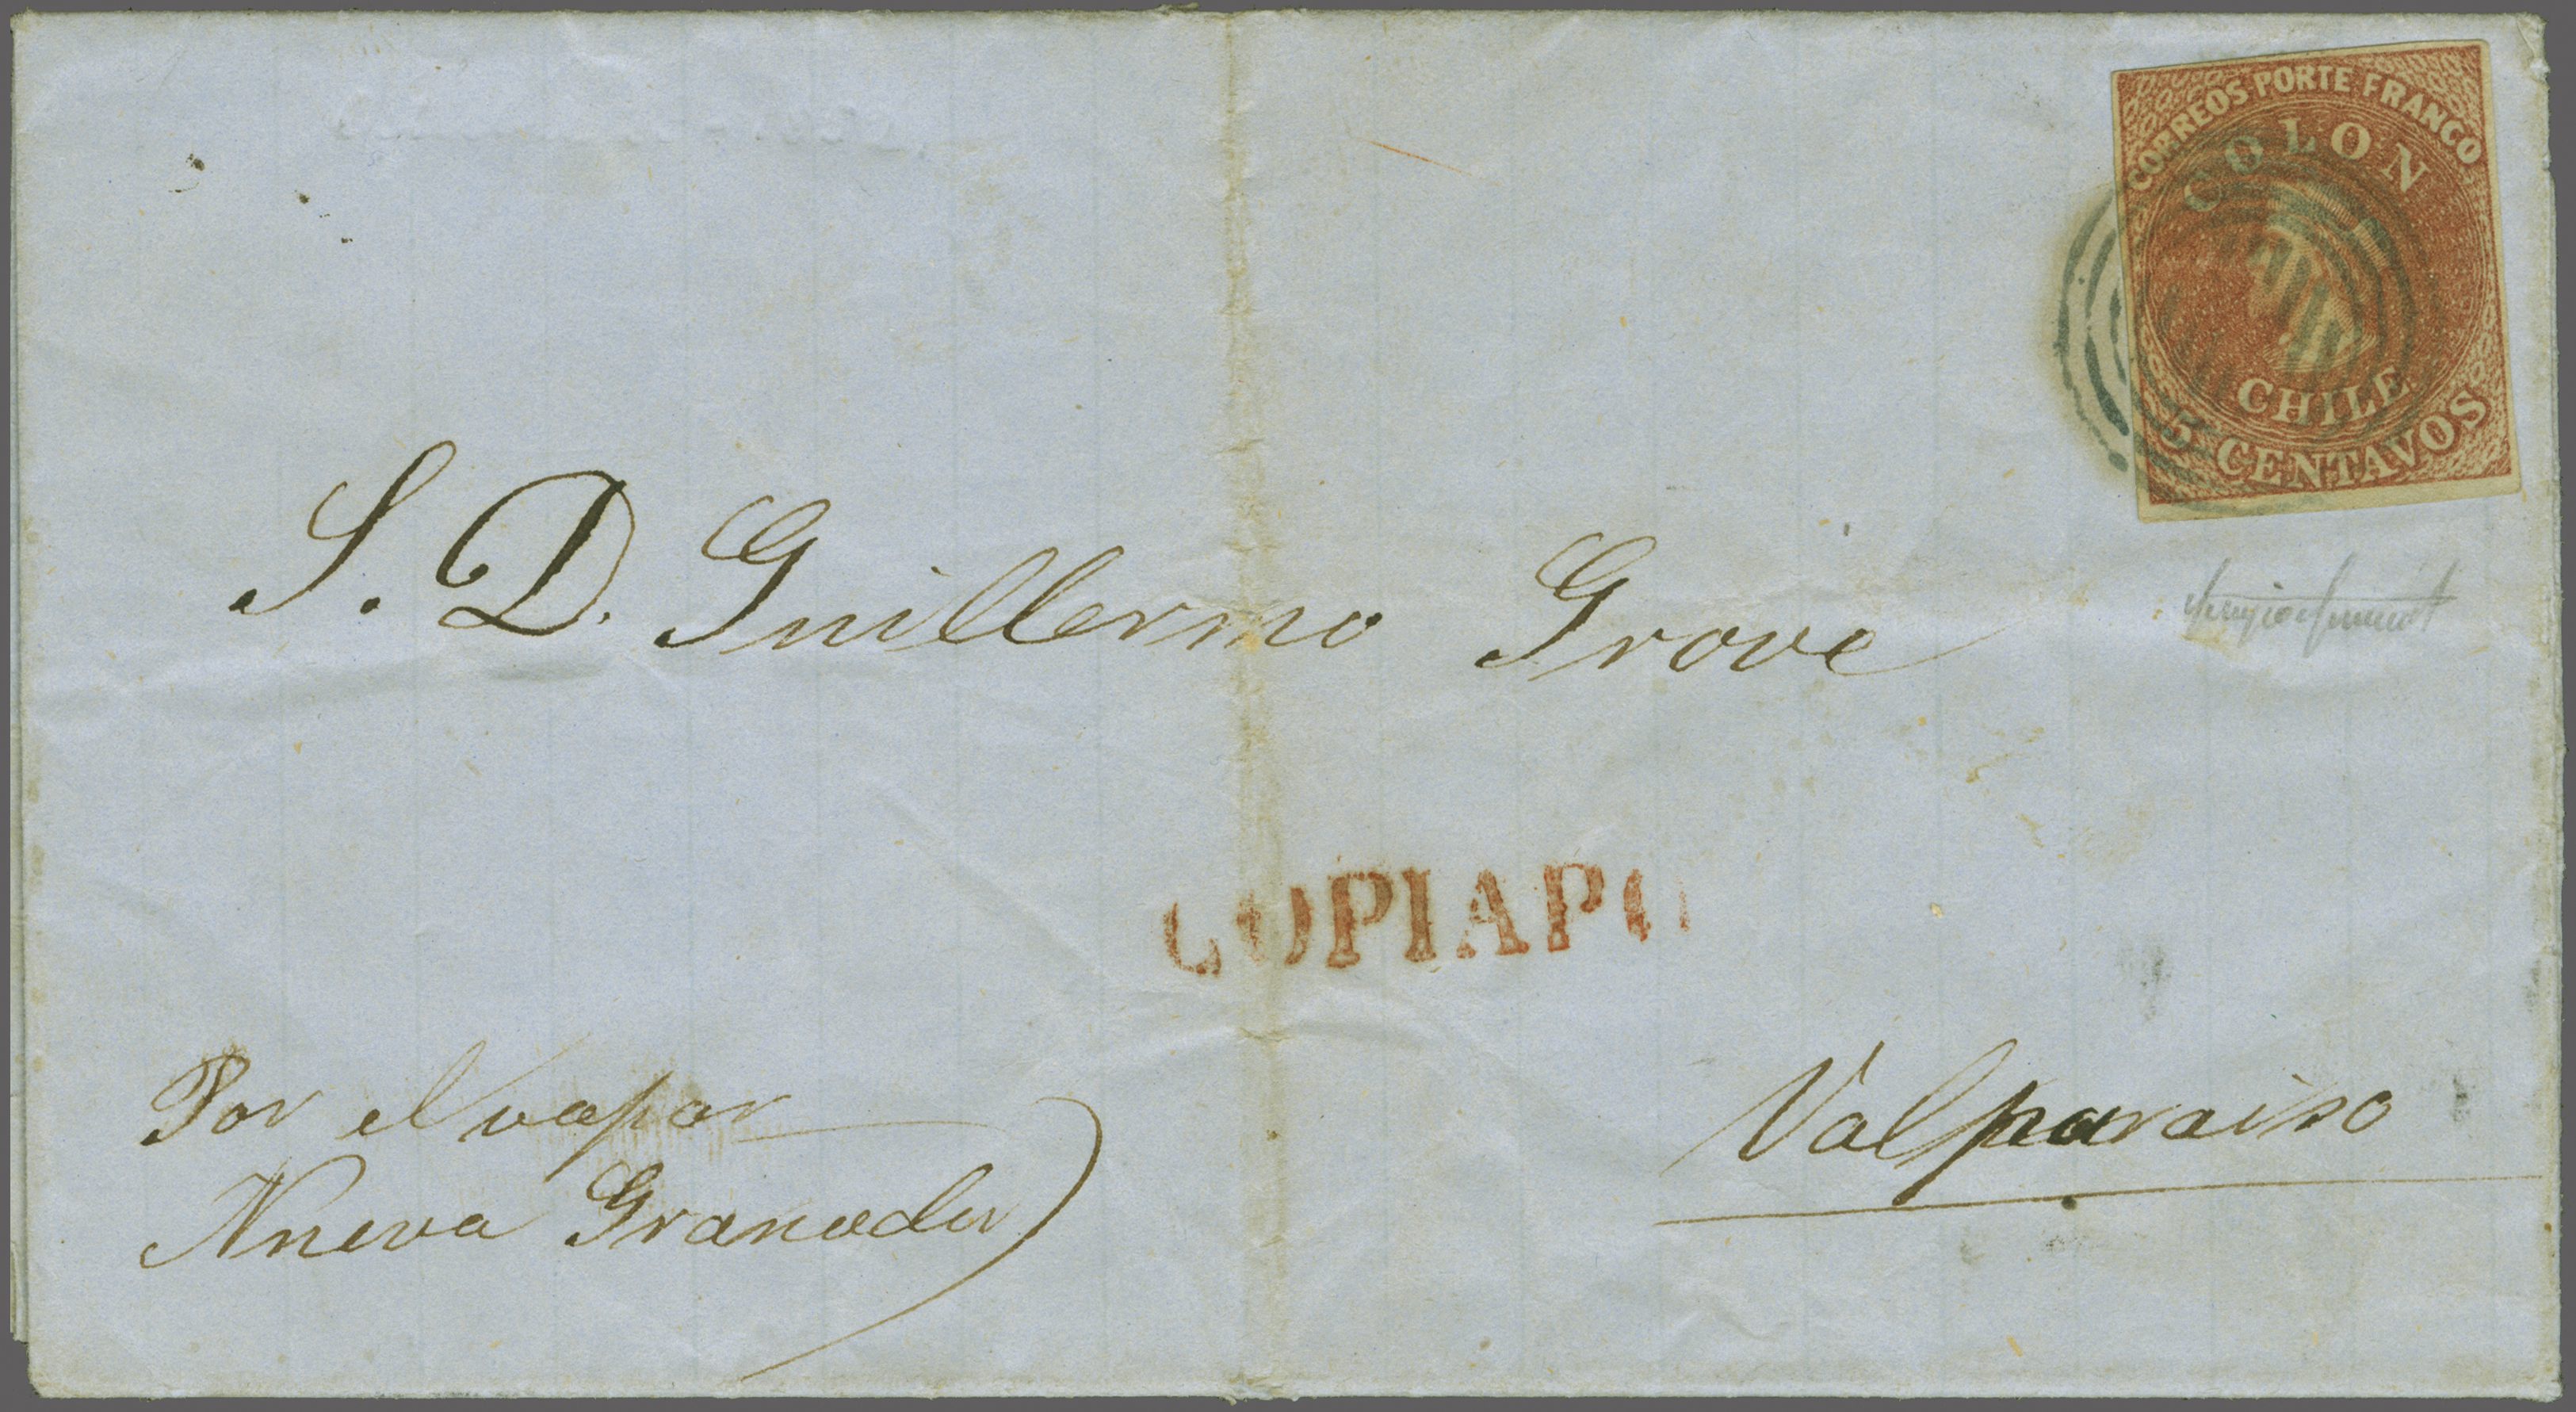 CORREOS PORTE FRANCO
COLON
CHILE
5 CENTAVOS
S. D. Guillermo Grove
COPIAPO
Por el vapor
Nueva Granada
Valparaiso